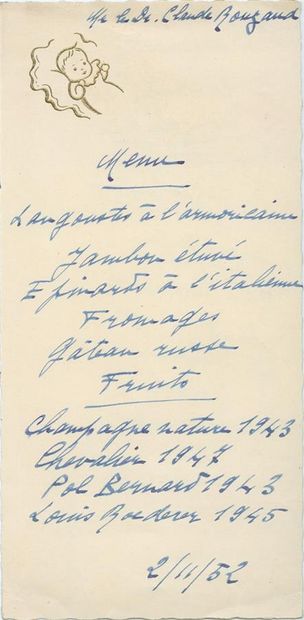 Mr le Dr. Claude Rouzaud
Menu
Langouste à l'armoricaine
Jambon étuvé
Epinards à l'italienne
Fromages
Gâteau russe
Fruits
Champagne nature 1943
Chevalier 1947
Pol Bernard 1943
Louis Roederer 1945
2/11/52